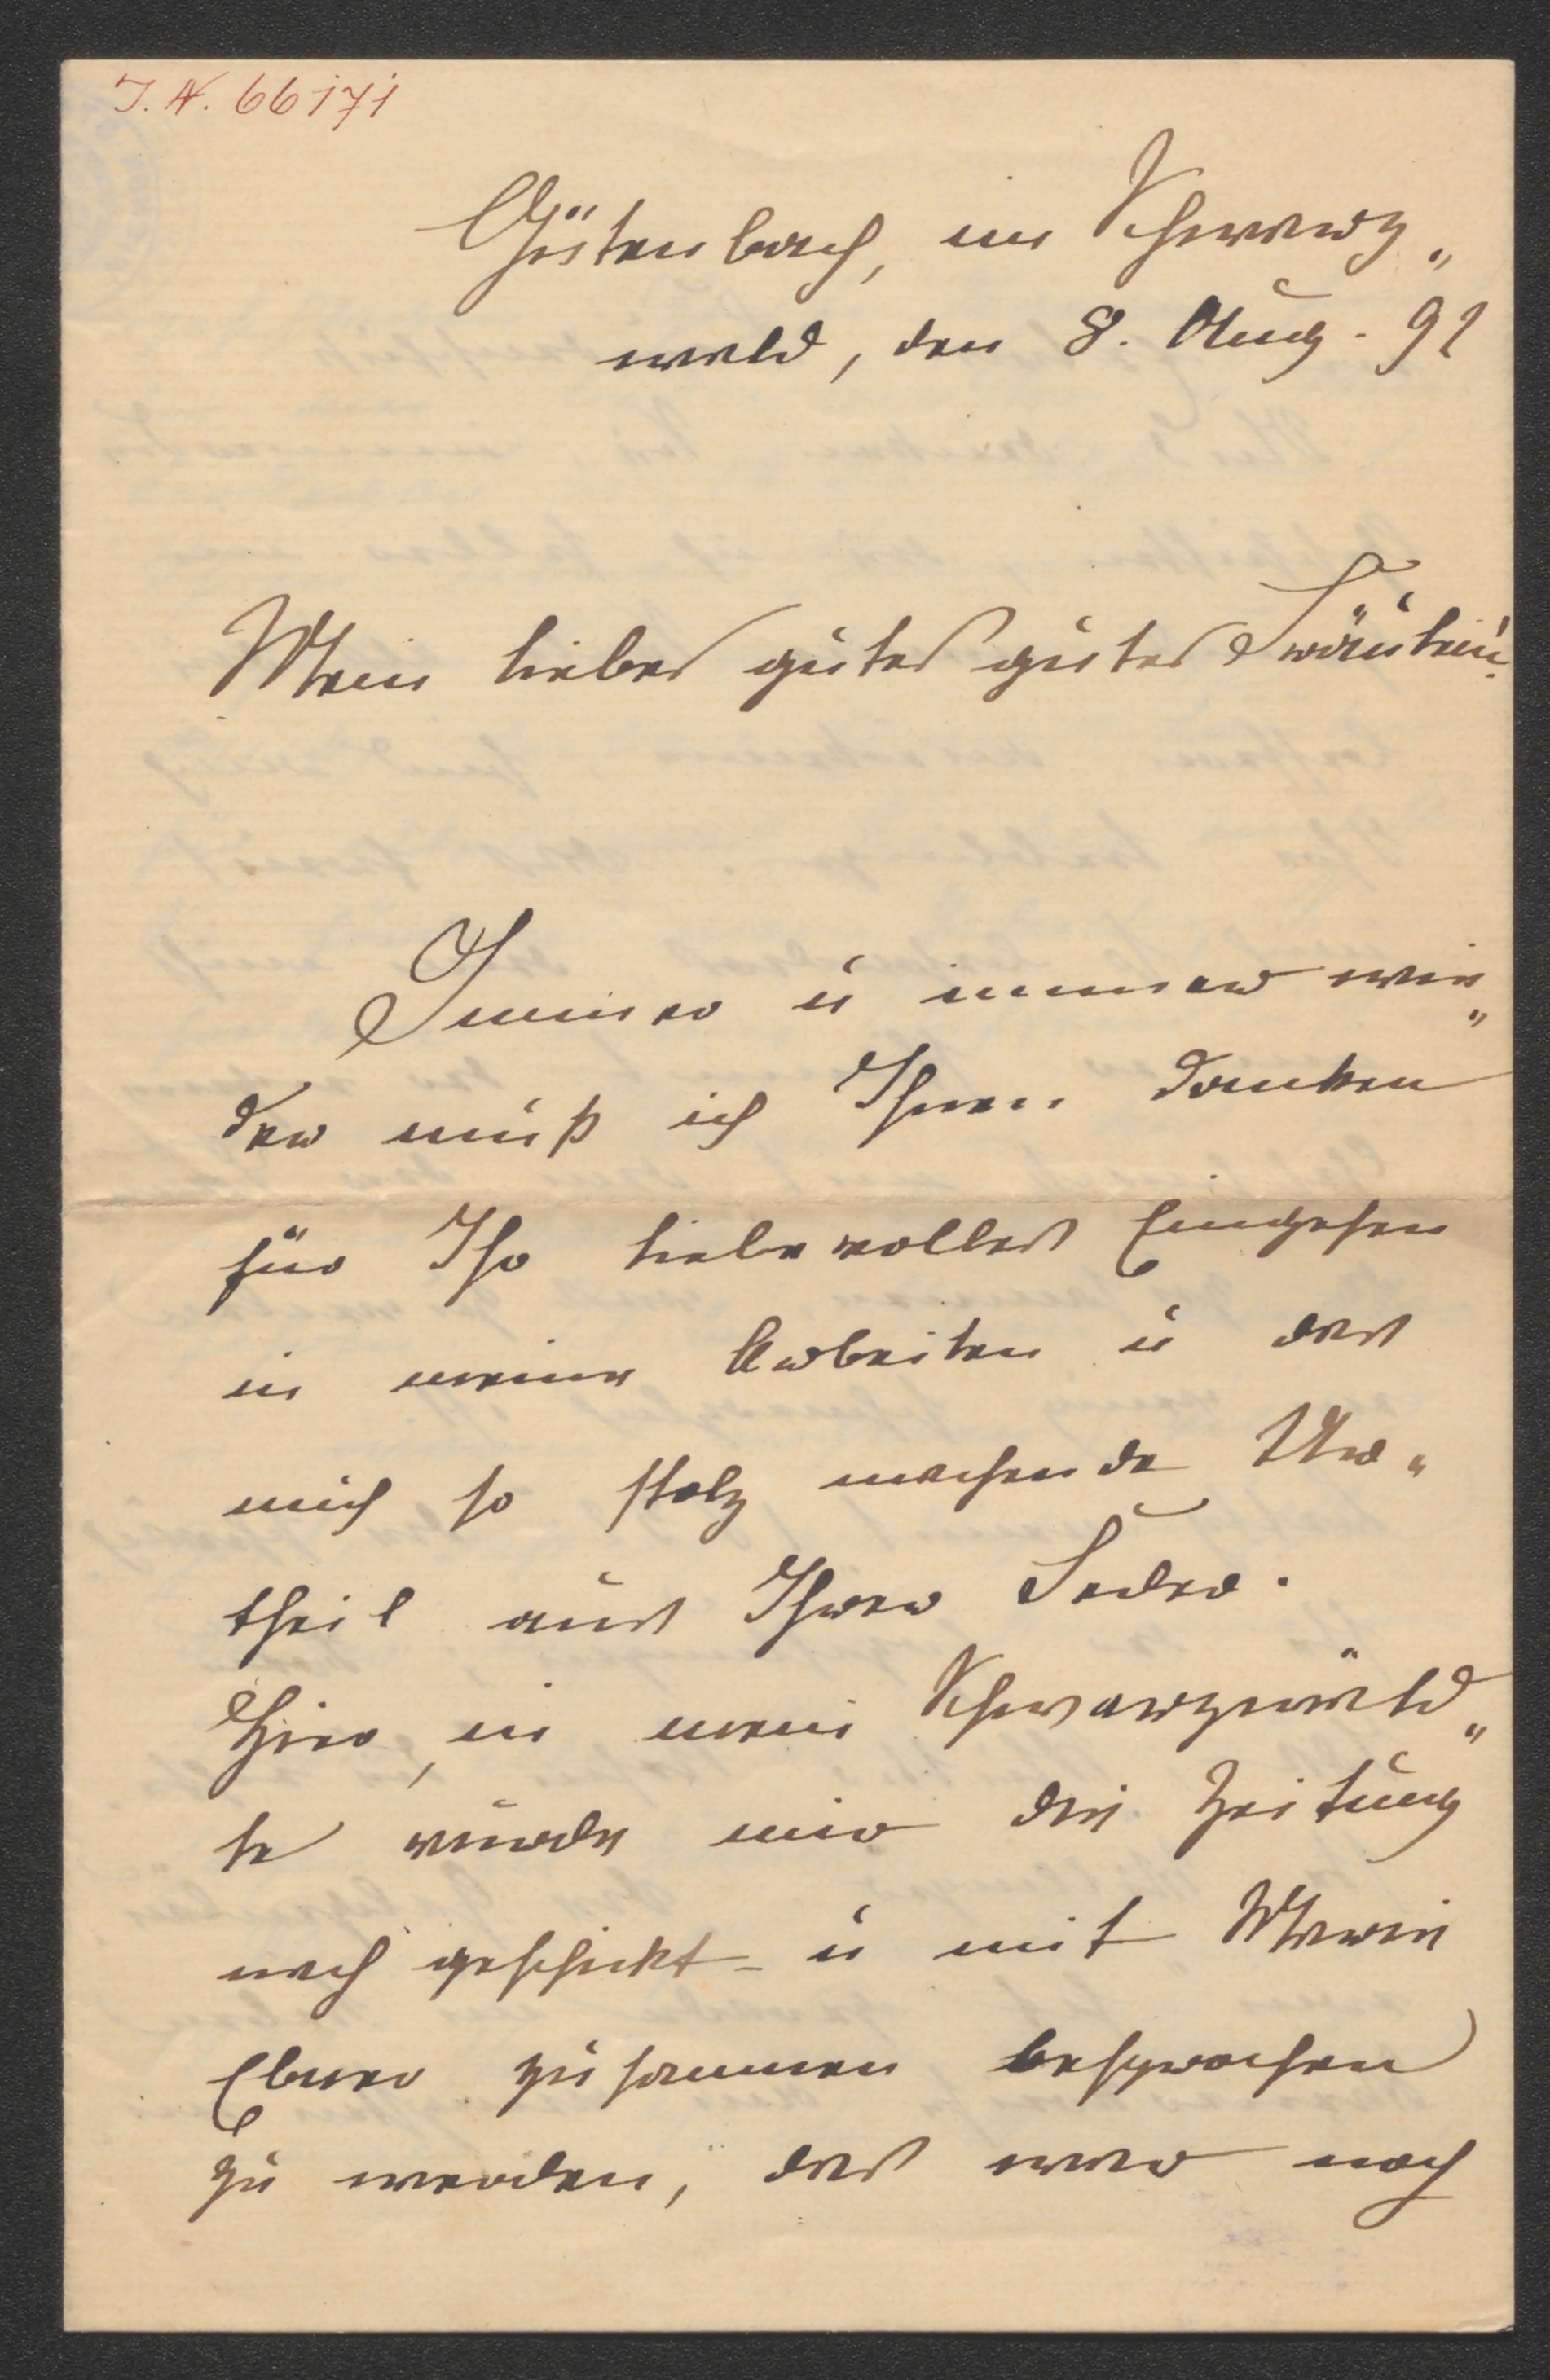 I. N. 66171
Gütenbach, im Schwarz„
wald, den 8. Aug. 92
Mein liebes gutes gutes Fräulein!
Immer u immer wie„
der muß ich Ihnen danken
für Ihr liebevolles Eingehen
in meine Arbeiten u das
mich so stolz machende Ur„
theil aus Ihrer Feder.
Hier, in mein Schwarzwäld„
le wurde mir die Zeitung
nach geschickt – u mit Marie
Ebner zusammen besprochen
zu werden, das war noch